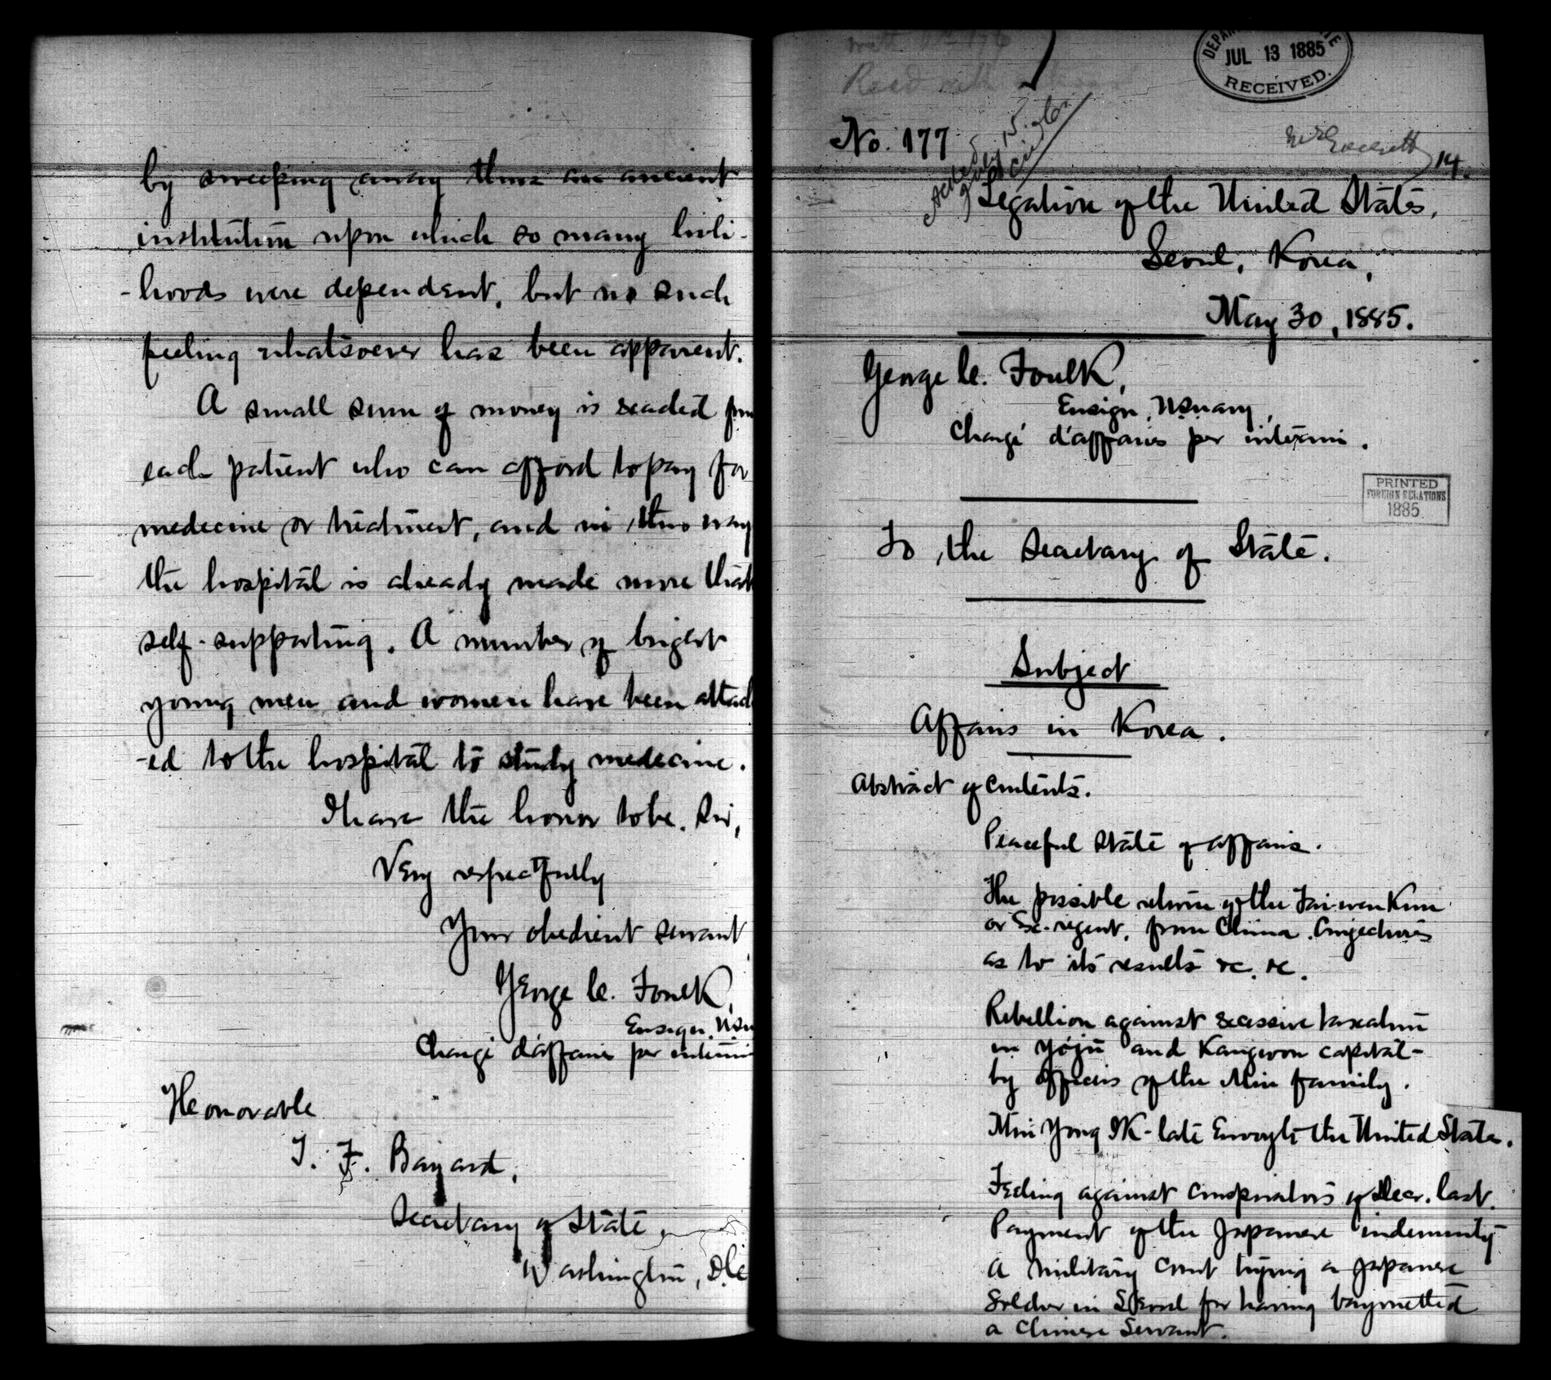 by sweeping away thus an ancient
institution upon which so many liveli-
-hoods were dependent, but no such
feeling whatsoever has been apparent.
A small sum of money is
each patient who can afford to pay for
medecine or treatment, and in this way
the hospital is already made more than
self-supporting. A number of brigest
young men and women have been attach
-ed to the hospital to study medecine.
I have the honor to be, Sir,
Very respectfully
Your obedient servant
George C. Foulk,
Ensign,
Chargé d'affaires per interim
Honorable
T. F. Bayard,
Secretary of State,
Washington, D.C.
DEPARTMENT OF STATE
JUL 13 1885
RECEIVED.
No. 177
14.
Legation of the United States,
Seoul, Korea,
May 30, 1885.
George C. Foulk,
Ensign, U.S. Navy,
Chargé d'affaires per interim.
PRINTED
FOREIGN RELATIONS
1885.
To the Secretary of State.
Subject
Affairs in Korea.
Abstract of contents.
Peaceful state of affairs.
The possible return of the Tai-wen Kun
or Ex-regent, from China. Conjectures
as to its results &c. &c.
Rebellion against excessive taxation
in Yöju and Kangwon capital-
by officers of the Min family.
Min Yong Ik-late Envoy to the United States.
Feeling against conspirators of Decr. last.
Payment of the Japanese indemnity
A military court trying a Japanese
Soldier in Seoul for having bayonetted
a Chinese Servant.